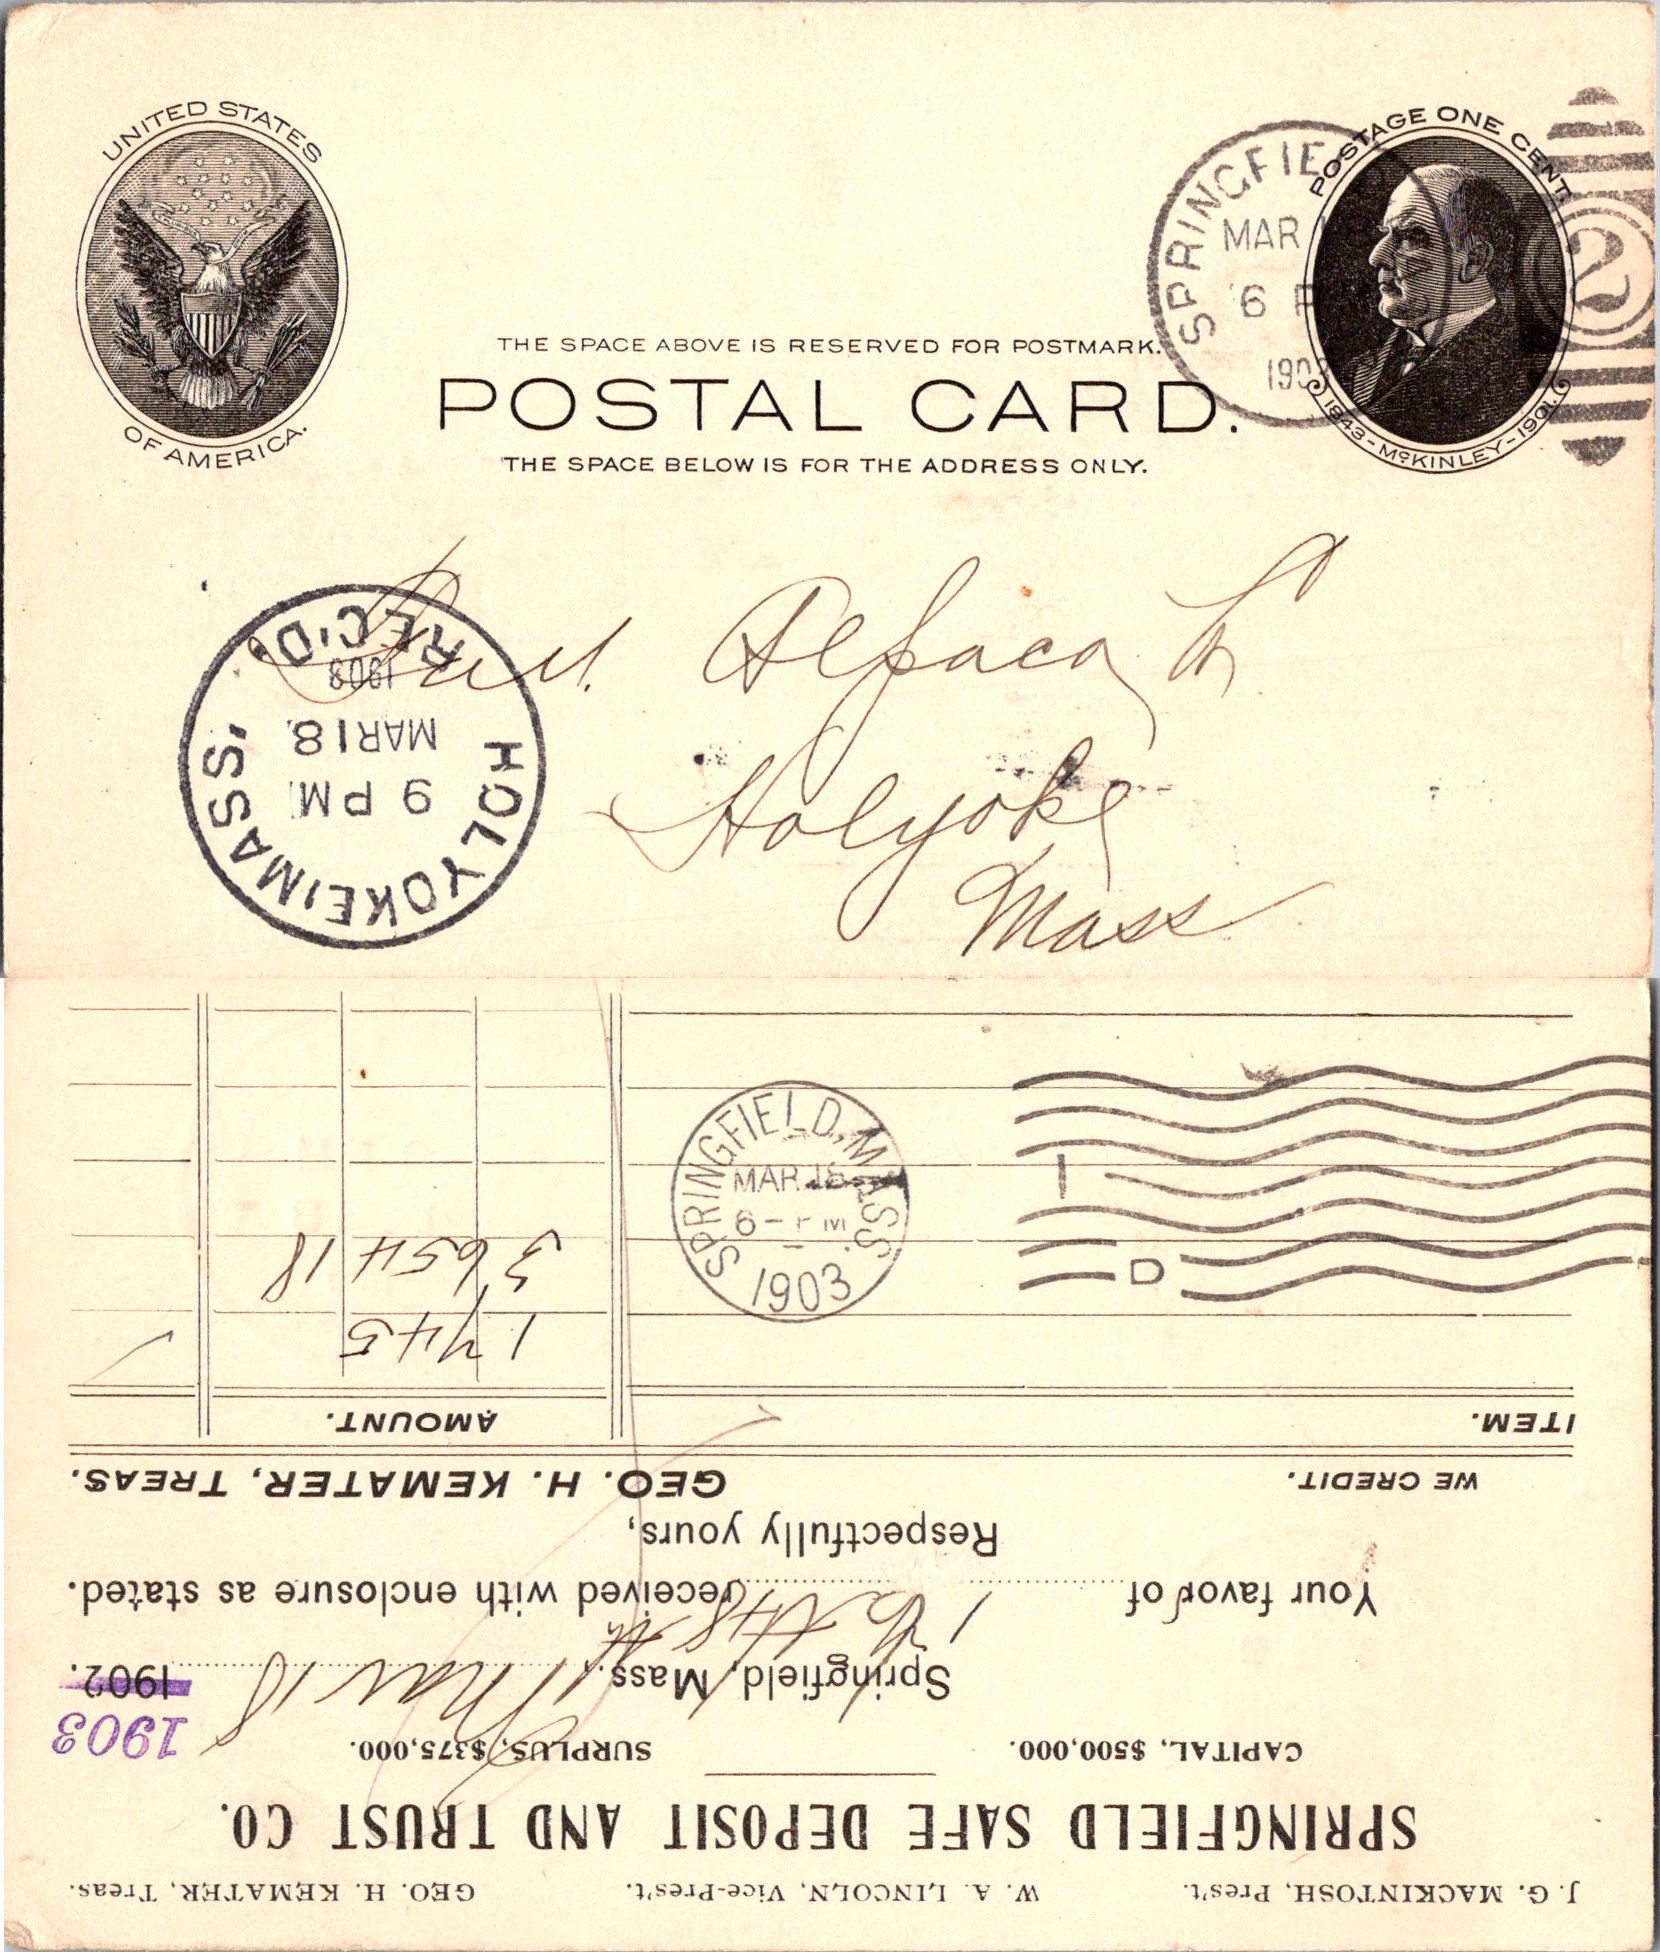 UNITED STATES
OF AMERICA.
POSTAGE ONE CENT.
1843-McKINLEY-1901.
SPRINGFIE
MAR
6 P
1903
2
THE SPACE ABOVE IS RESERVED FOR POSTMARK.
POSTAL CARD.
THE SPACE BELOW IS FOR THE ADDRESS ONLY.
Alpaca
Holyoke
Mass
HOLYOKE, MASS,
9 PM
MAR 18
1903
REC'D.
J. G. MACKINTOSH, Pres't. W. A. LINCOLN, Vice-Pres't. GEO. H. KEMATER, Treas.
SPRINGFIELD SAFE DEPOSIT AND TRUST CO.
CAPITAL, $500,000. SURPLUS, $375,000.
1903
Springfield, Mass. Mar 18 1902.
Your favor of received with enclosure as stated.
Respectfully yours,
WE CREDIT. GEO. H. KEMATER, TREAS.
ITEM. AMOUNT.
1 745
3 654 18
SPRINGFIELD, MASS.
MAR 18
6 - PM
1903
D
1